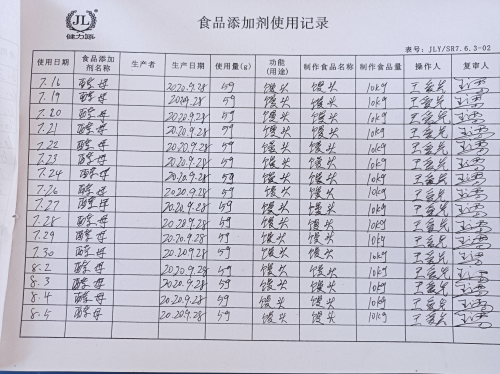 JL
健力源
食品添加剂使用记录
表号：JLY/SR7.6.3-02
使用日期 食品添加剂名称 生产者 生产日期 使用量(g) 功能(用途) 制作食品名称 制作食品量 操作人 复审人
7.16 酵母 2020.9.28 5g 馒头 馒头 10kg
7.19 酵母 2020.9.28 5g 馒头 馒头 10kg
7.20 酵母 2020.9.28 5g 馒头 馒头 10kg
7.21 酵母 2020.9.28 5g 馒头 馒头 10kg
7.22 酵母 2020.9.28 5g 馒头 馒头 10kg
7.23 酵母 2020.9.28 5g 馒头 馒头 10kg
7.24 酵母 2020.9.28 5g 馒头 馒头 10kg
7.26 酵母 2020.9.28 5g 馒头 馒头 10kg
7.27 酵母 2020.9.28 5g 馒头 馒头 10kg
7.28 酵母 2020.9.28 5g 馒头 馒头 10kg
7.29 酵母 2020.9.28 5g 馒头 馒头 10kg
7.30 酵母 2020.9.28 5g 馒头 馒头 10kg
8.2 酵母 2020.9.28 5g 馒头 馒头 10kg
8.3 酵母 2020.9.28 5g 馒头 馒头 10kg
8.4 酵母 2020.9.28 5g 馒头 馒头 10kg
8.5 酵母 2020.9.28 5g 馒头 馒头 10kg